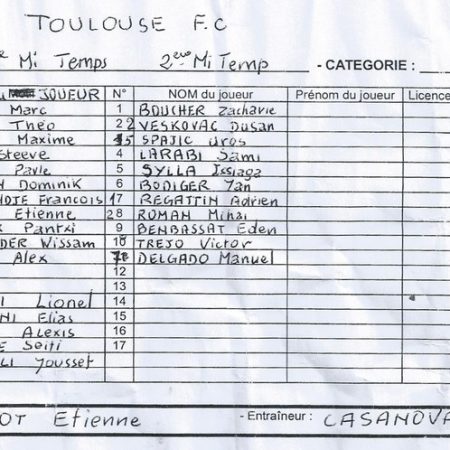 TOULOUSE F.C
Mi Temps 2ème Mi Temp - CATEGORIE :
JOUEUR N° NOM du joueur Prénom du joueur Licence
Marc 1 BOUCHER Zacharie
Théo 22 VESKOVAC Dusan
Maxime 15 SPAJIC Uros
Steeve 4 LARABI Sami
Pavle 5 SYLLA Issiaga
Dominik 6 BODIGER Yan
Francois 17 REGATTIN Adrien
Etienne 28 ROMAN Mihai
Pantxi 9 BENBASSAT Eden
DER Wissam 10 TREJO Victor
Alex DELGADO Manuel
12
13
I Lionel 14
NI Elias 15
Alexis 16
E Seiti 17
LI Yousset
OT Etienne - Entraîneur : CASANOVA